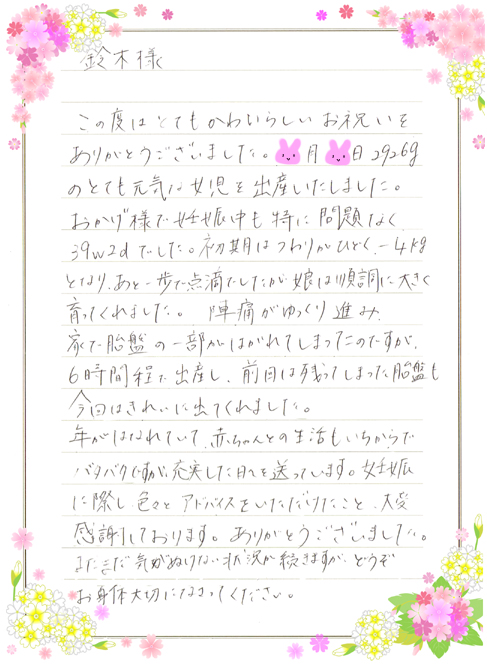 鈴木様
この度はとてもかわいらしいお祝いを
ありがとうございました。月日2926g
のとても元気な女児を出産いたしました。
おかげ様で妊娠中も特に問題なく
39w2dでした。初期はつわりがひどく、-4kg
となり、あと一歩で点滴でしたが娘は順調に大きく
育ってくれました。陣痛がゆっくり進み
家で胎盤の一部がはがれてしまったのですが、
6時間程で出産し、前回は残ってしまった胎盤も
今回はきれいに出てくれました。
年がはなれていて、赤ちゃんとの生活もいちからで
バタバタですが、充実した日々を送っています。妊娠
に際し色々とアドバイスをいただけたこと、大変
感謝しております。ありがとうございました。
まだまだ気がぬけない状況が続きますが、どうぞ
お身体大切になさってください。